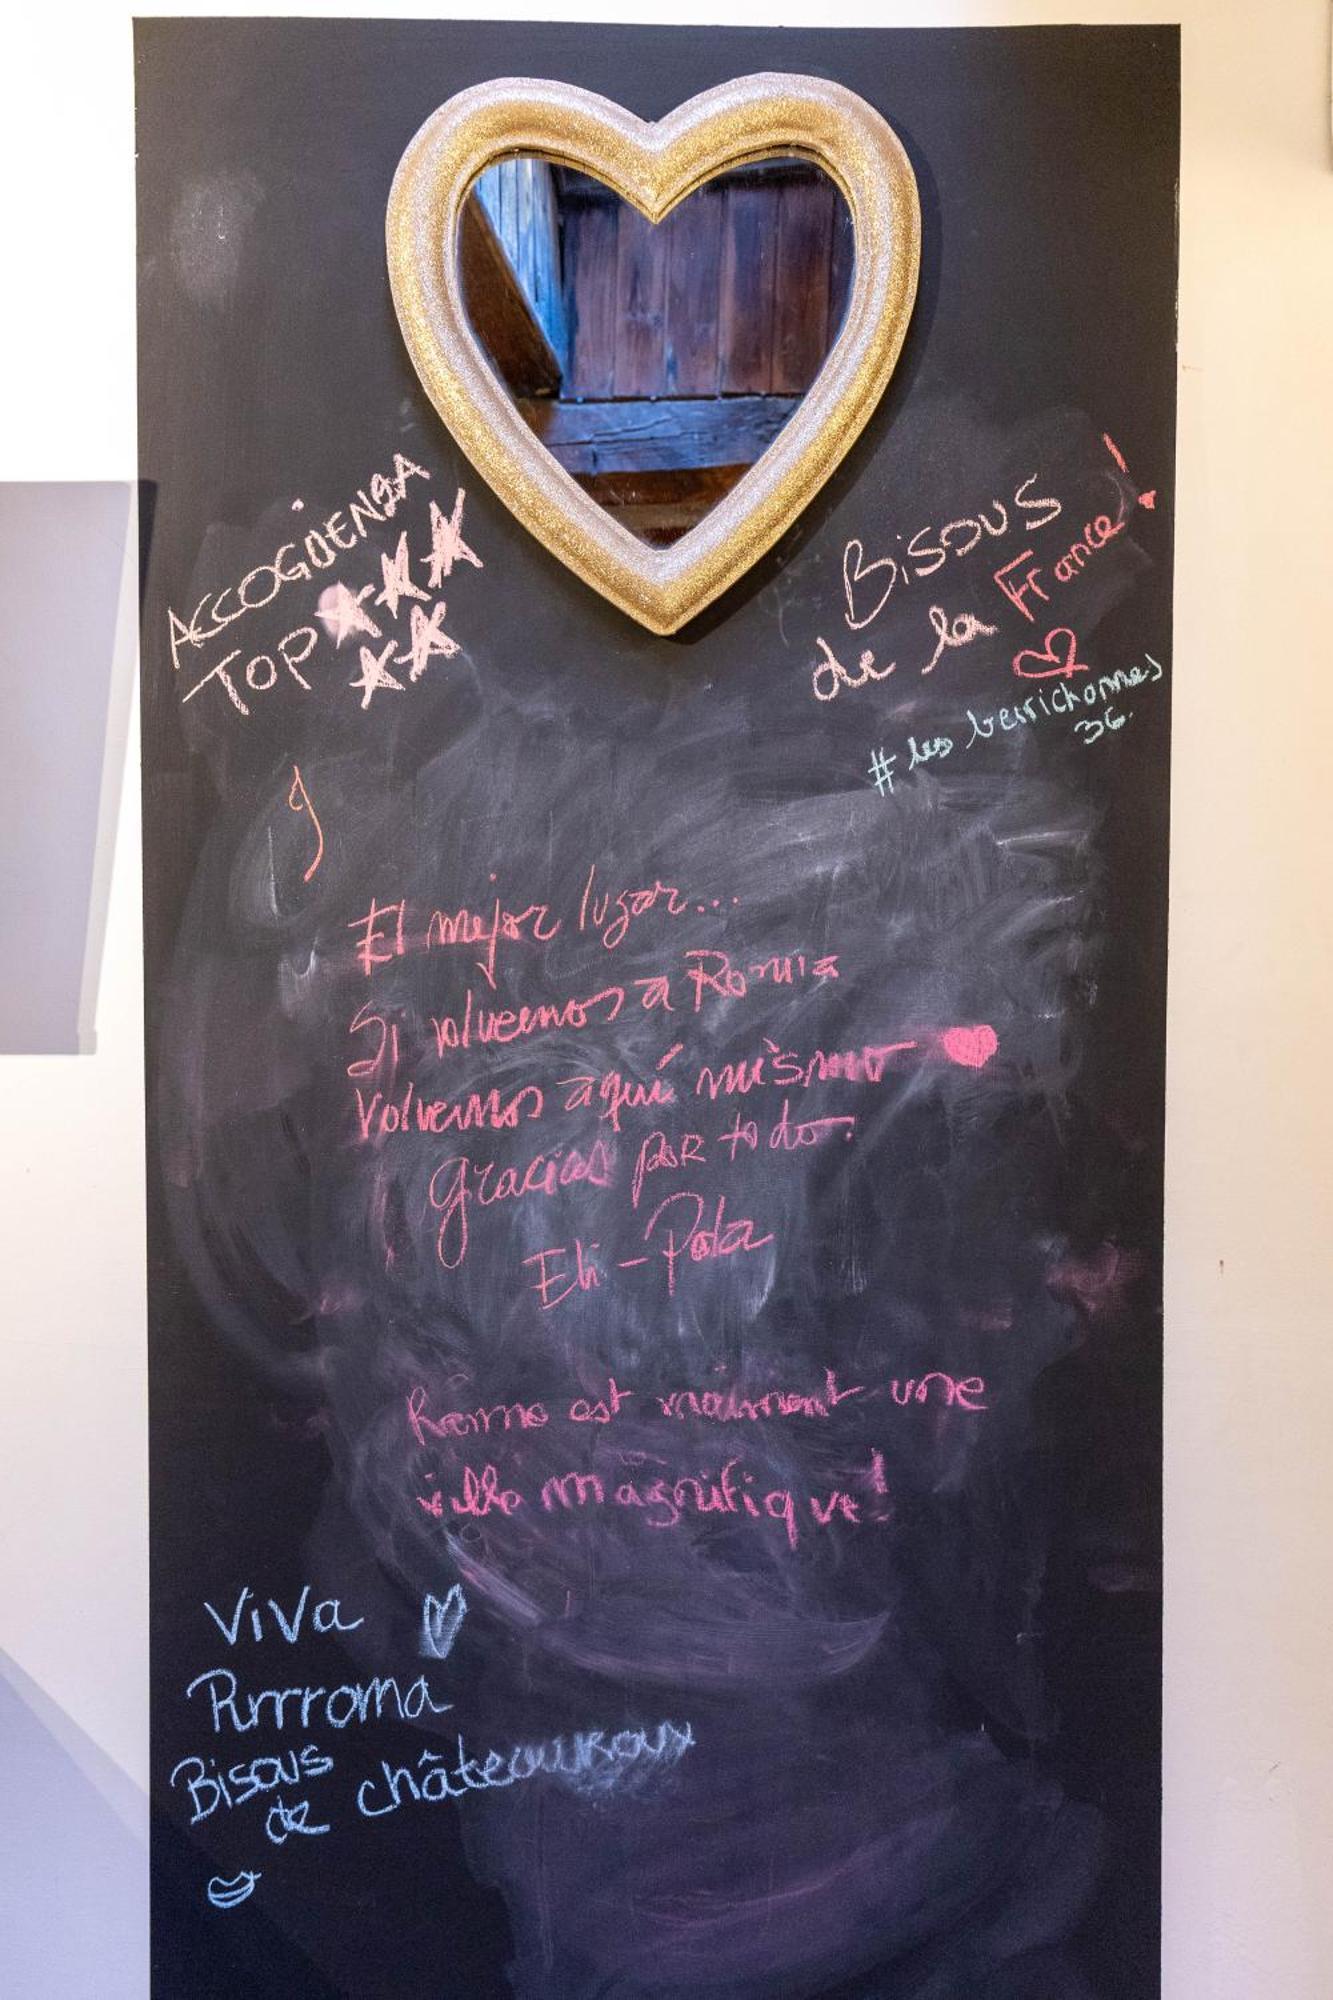 ACCOGOENSA
TOP
Bisous
de la France !
# les berrichonnes
36.
El mejor lugar...
Si volvemos a Roma
Volvemos aquí mismo
Gracias por todo.
Eli - Pola
Rome est vraiment une
ville magnifique !
Viva
Rrrroma
Bisous
de châteauroux